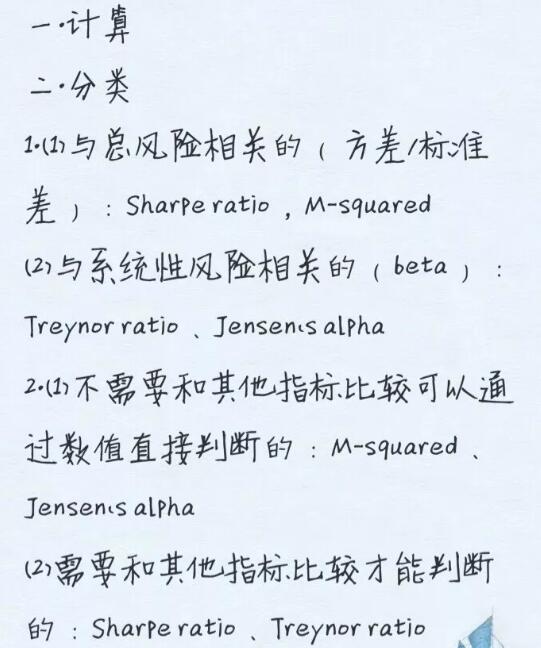 一.计算
二.分类
1.(1)与总风险相关的(方差/标准
差):Sharpe ratio,M-squared
(2)与系统性风险相关的(beta):
Treynor ratio、Jensen's alpha
2.(1)不需要和其他指标比较可以通
过数值直接判断的:M-squared、
Jensen's alpha
(2)需要和其他指标比较才能判断
的:Sharpe ratio、Treynor ratio